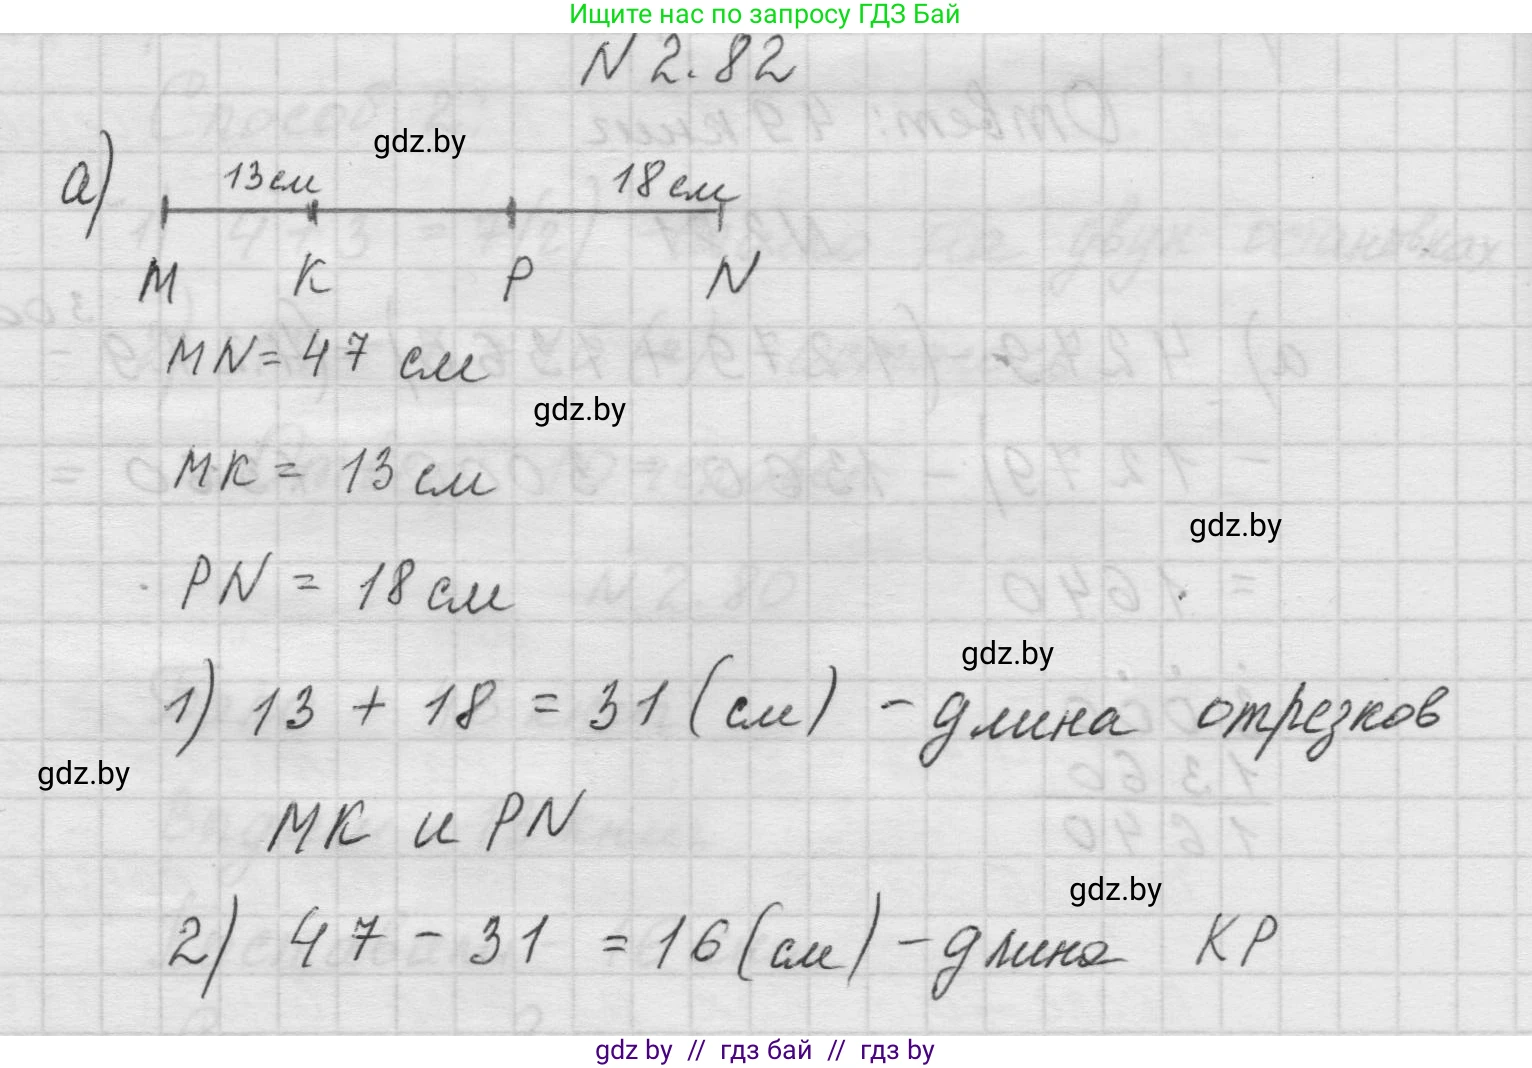 Ищите нас по запросу ГДЗ Бай
N 2.82
gdz.by
а)
13см 18см
M K P N
MN = 47 см
gdz.by
MK = 13 см
gdz.by
PN = 18 см
gdz.by
1) 13 + 18 = 31 (см) - длина отрезков
gdz.by
MK и PN
gdz.by
2) 47 - 31 = 16 (см) - длина KP
gdz by // гдз бай // гдз by